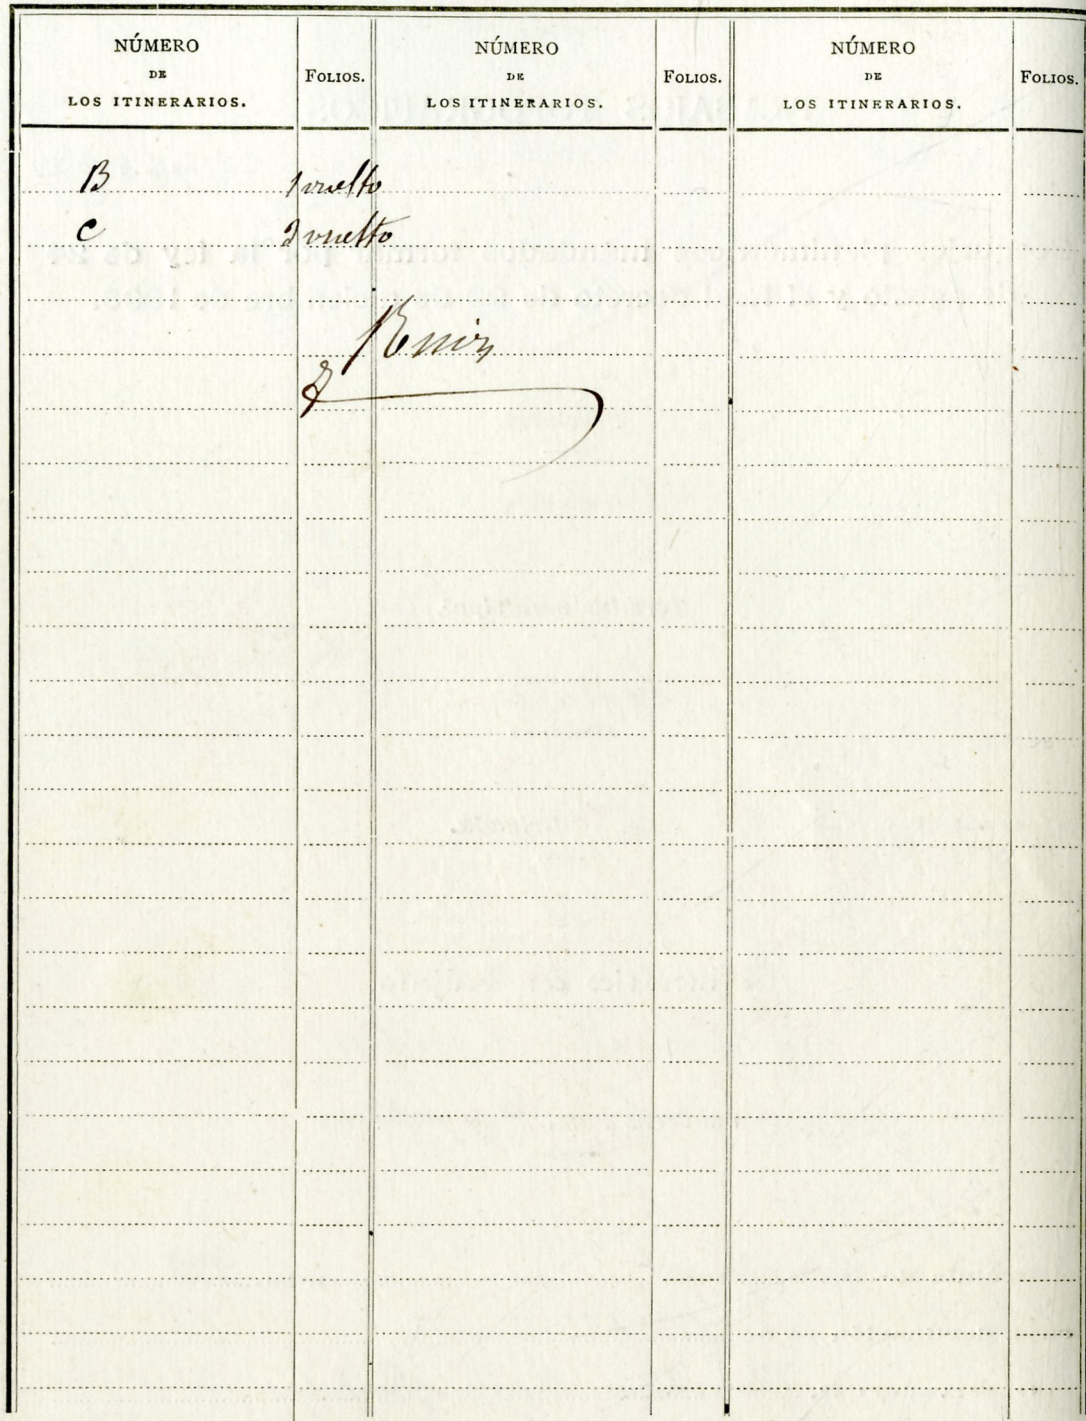 NÚMERO
DE
LOS ITINERARIOS.
FOLIOS.
NÚMERO
DE
LOS ITINERARIOS.
FOLIOS.
NÚMERO
DE
LOS ITINERARIOS.
FOLIOS.
B 1 vuelto
C 2 vuelto
Ruiz